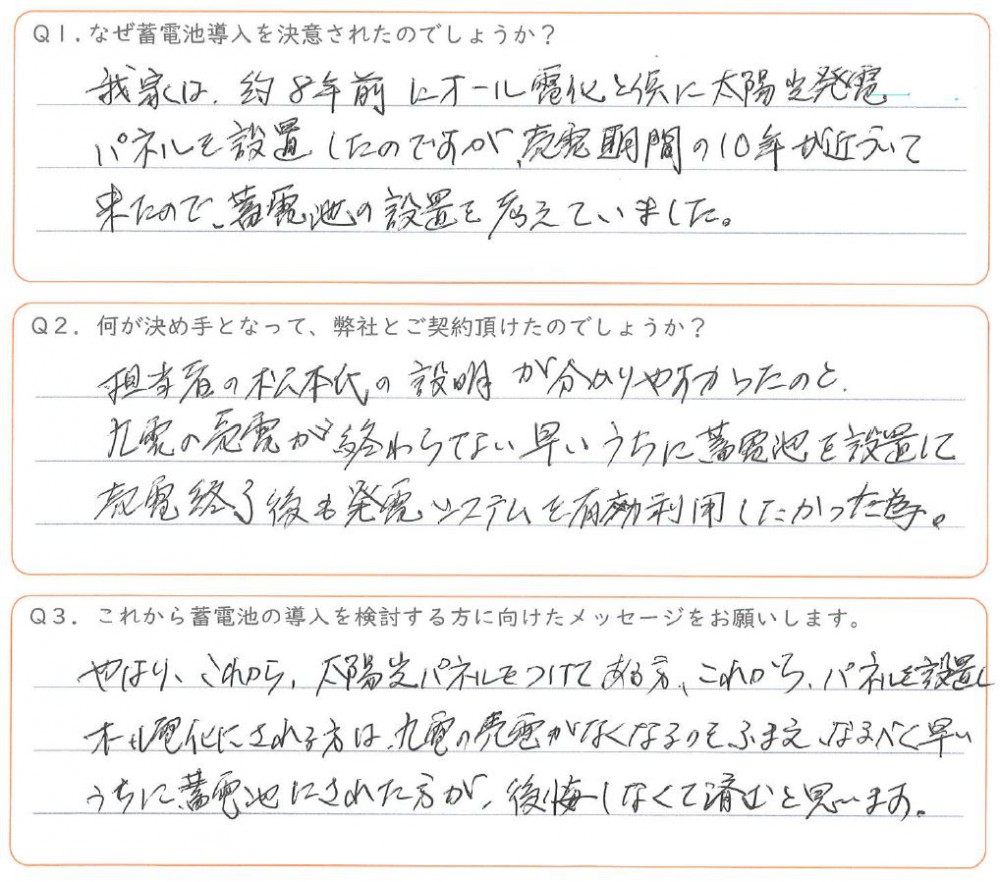 Q1．なぜ蓄電池導入を決意されたのでしょうか？
我家は、約8年前にオール電化と供に太陽光発電
パネルを設置したのですが、売電期間の10年が近ずいて
来たので、蓄電池の設置を考えていました。
Q2．何が決め手となって、弊社とご契約頂けたのでしょうか？
担当者の松本氏の説明が分かりやすかったのと、
九電の売電が終わらない早いうちに蓄電池を設置して
売電終了後も発電システムを有効利用したかった為。
Q3．これから蓄電池の導入を検討する方に向けたメッセージをお願いします。
やはり、これから、太陽光パネルをつけてある方、これから、パネルを設置し
オール電化にされる方は、九電の売電がなくなるのをふまえ、なるべく早い
うちに、蓄電池にされた方が、後悔しなくて済むと思います。